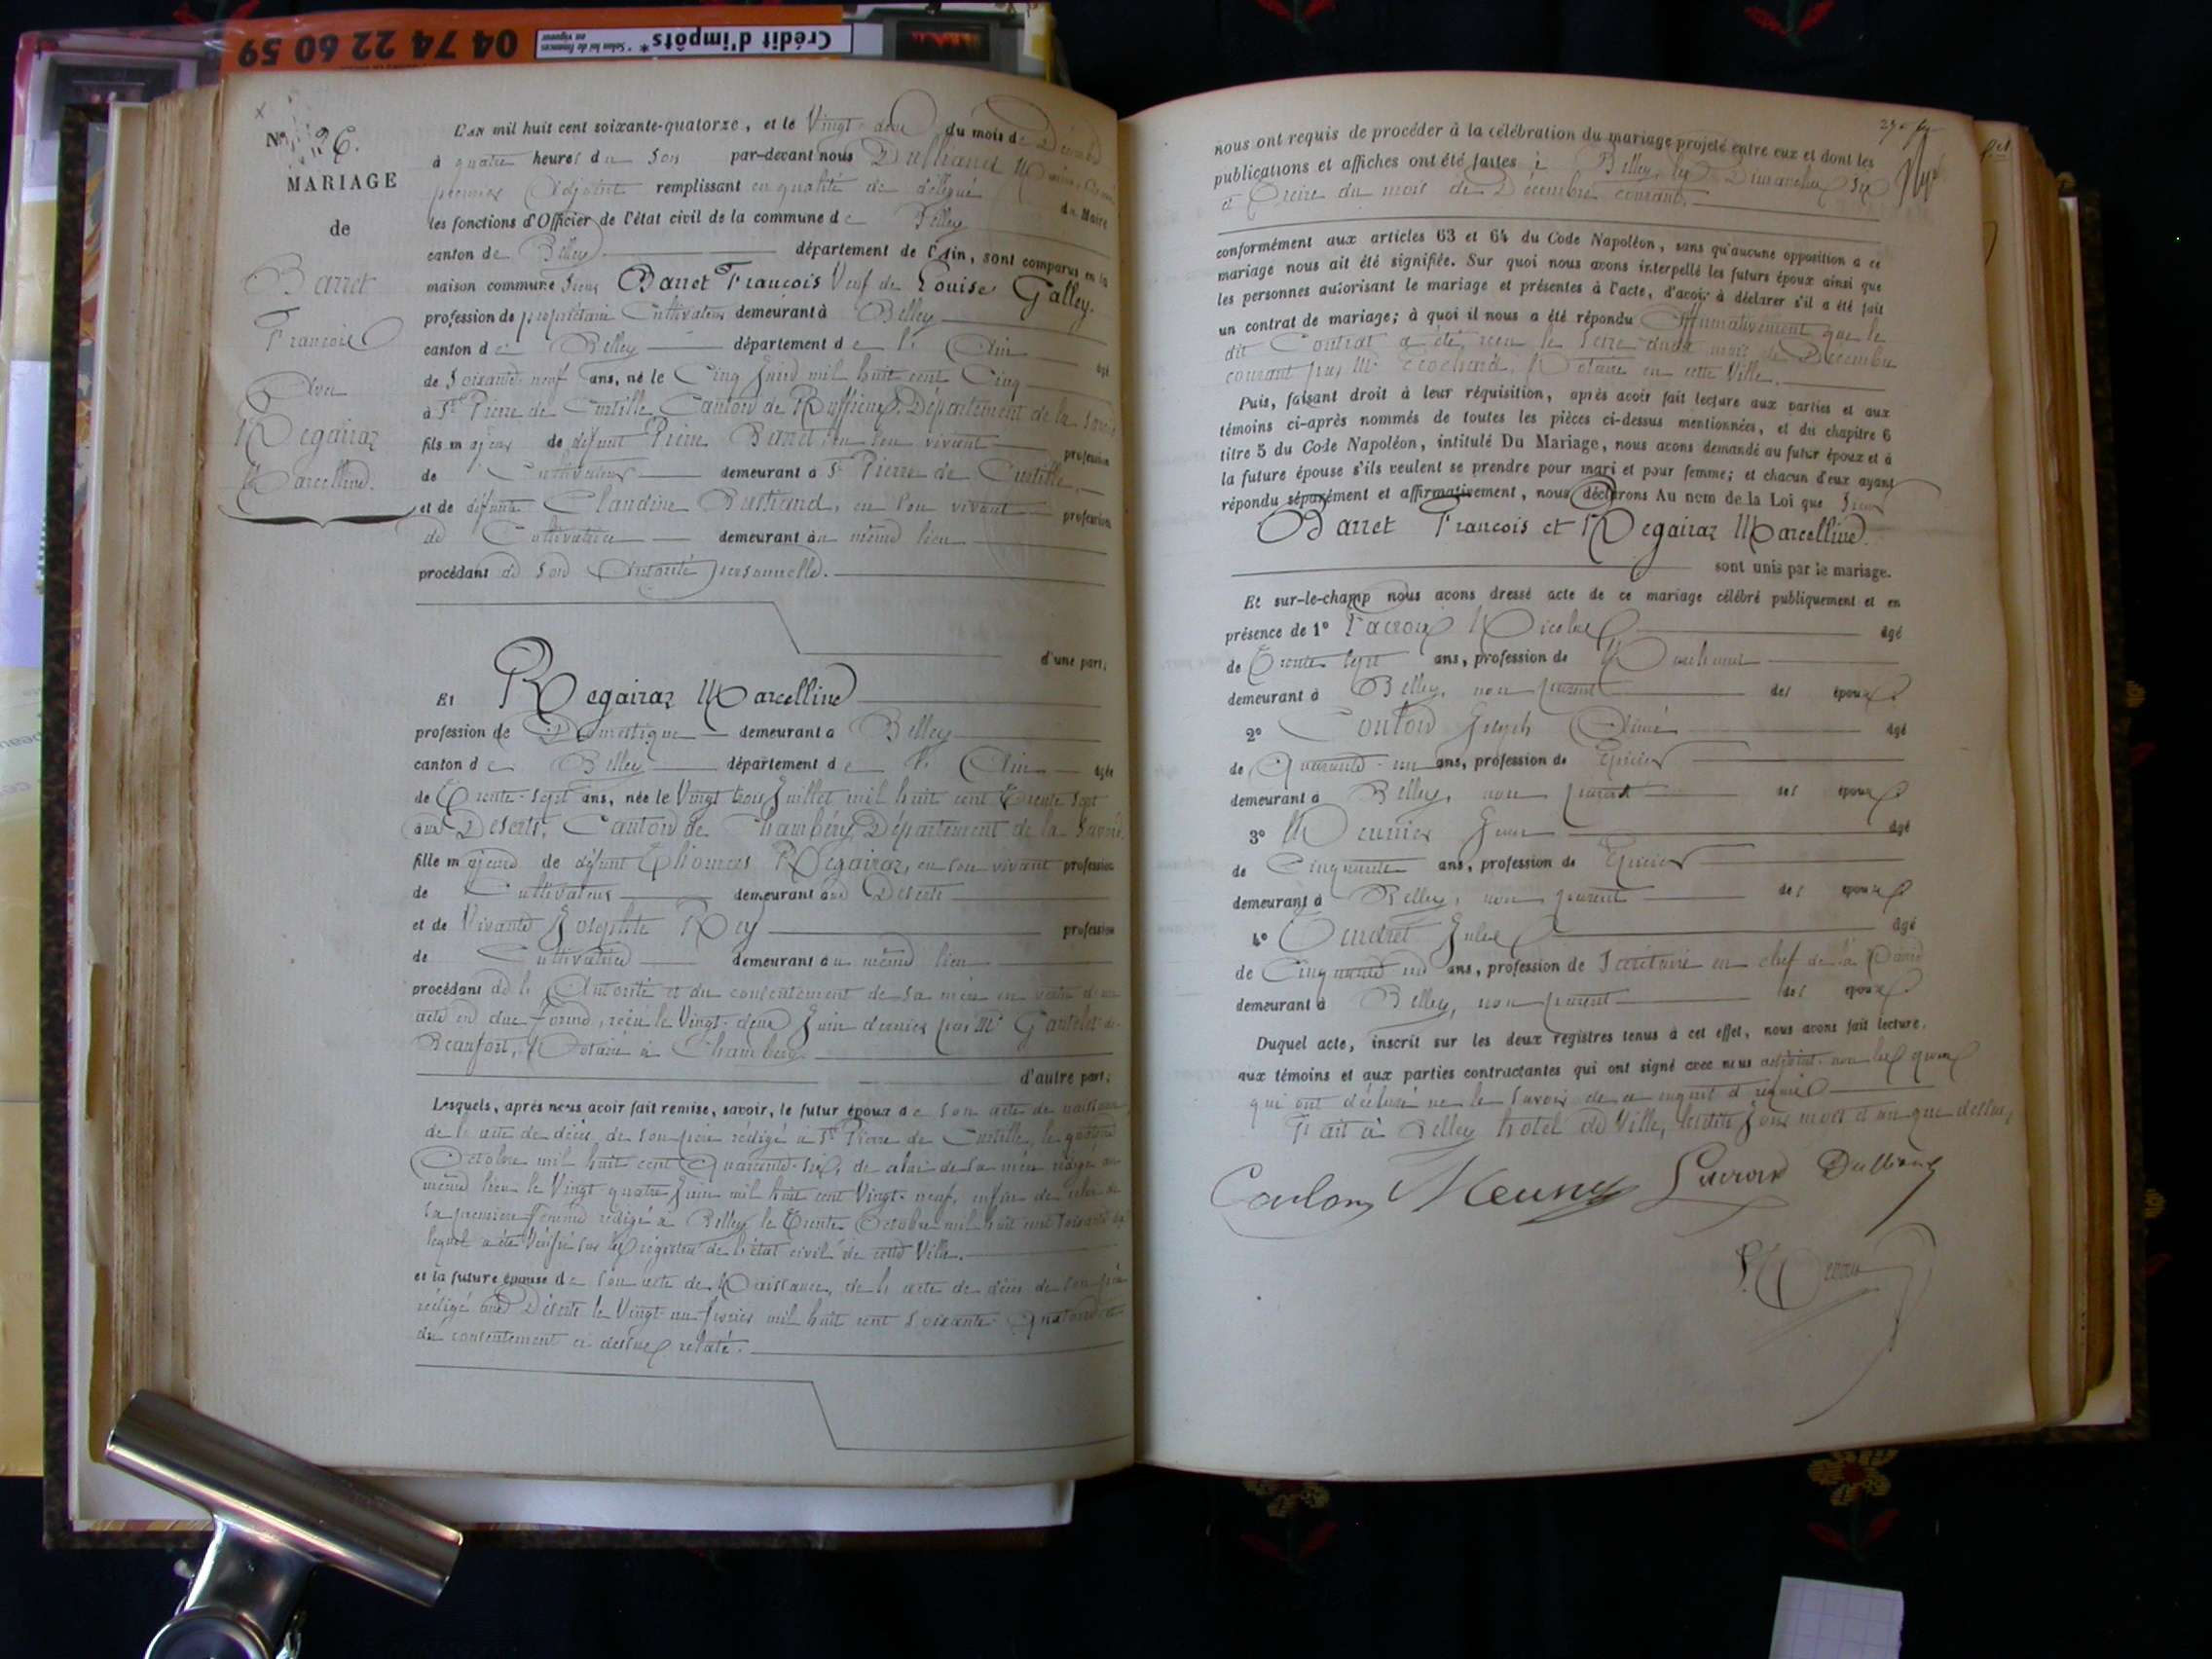 04 74 22 60 59
Crédit d'impôts*
* Selon loi de finances
en vigueur
N° 26.
MARIAGE
de
Barret
François
Avec
Regairaz
Marcelline.
L'AN mil huit cent soixante-quatorze, et le Vingt deux du mois de Décembre
à quatre heures du soir par-devant nous Dulliand
premier Adjoint remplissant en qualité de délégué du Maire
les fonctions d'Officier de l'état civil de la commune de Belley
canton de Belley département de l'Ain, sont comparus en la
maison commune Sieur Barret François Veuf de Louise Galley.
profession de propriétaire Cultivateur demeurant à Belley
canton de Belley département de l'Ain âgé
de Soixante-neuf ans, né le Cinq Juin mil huit cent Cinq
à St Pierre de Curtille, Canton de Ruffieux, Département de la Savoie
fils majeur de défunt Pierre Barret, en son vivant profession
de Cultivateur demeurant à St Pierre de Curtille,
et de défunte Claudine Berthand, en son vivant profession
de Cultivatrice demeurant au même lieu
procédant de son Autorité personnelle.
d'une part;
Et Regairaz Marcelline
profession de Domestique demeurant à Belley
canton de Belley département de l'Ain âgée
de Trente-sept ans, née le Vingt trois Juillet mil huit cent Trente sept
aux Déserts, Canton de Chambéry, Département de la Savoie,
fille majeure de défunt Thomas Regairaz, en son vivant profession
de Cultivateur demeurant aux Déserts
et de Vivante Josephte Rey profession
de Cultivatrice demeurant au même lieu
procédant de l'Autorité et du consentement de sa mère en vertu d'un
acte en due forme, reçu le Vingt-deux Juin dernier par Me Gantelet de
Beaufort, Notaire à Chambéry.
d'autre part;
Lesquels, après nous avoir fait remise, savoir, le futur époux de son acte de naissance,
de l'acte de décès de son père rédigé à St Pierre de Curtille, le quatorze
Octobre mil huit cent Quarante-six, de celui de sa mère rédigé au
même lieu le Vingt quatre Juin mil huit cent Vingt-neuf, enfin de celui de
sa première femme rédigé à Belley le Trente Octobre mil huit cent soixante
lequel a été Vérifié sur les registres de l'état civil de cette Ville.
et la future épouse de son acte de Naissance, de l'acte de décès de son père
rédigé aux Déserts le Vingt-un février mil huit cent soixante-Quatorze et
du consentement ci dessus relaté.
nous ont requis de procéder à la célébration du mariage projeté entre eux et dont les
publications et affiches ont été faites à Belley, les Dimanches six
et Treize du mois de Décembre courant.
conformément aux articles 63 et 64 du Code Napoléon, sans qu'aucune opposition à ce
mariage nous ait été signifiée. Sur quoi nous avons interpellé les futurs époux ainsi que
les personnes autorisant le mariage et présentes à l'acte, d'avoir à déclarer s'il a été fait
un contrat de mariage; à quoi il nous a été répondu Affirmativement que le
dit Contrat a été reçu le seize dudit mois de Décembre
courant par Me Trochard, Notaire en cette Ville.
Puis, faisant droit à leur réquisition, après avoir fait lecture aux parties et aux
témoins ci-après nommés de toutes les pièces ci-dessus mentionnées, et du chapitre 6
titre 5 du Code Napoléon, intitulé Du Mariage, nous avons demandé au futur époux et à
la future épouse s'ils veulent se prendre pour mari et pour femme; et chacun d'eux ayant
répondu séparément et affirmativement, nous déclarons Au nom de la Loi que Sieur
Barret François et Regairaz Marcelline.
sont unis par le mariage.
Et sur-le-champ nous avons dressé acte de ce mariage célébré publiquement et en
présence de 1° Lacroix Nicolas âgé
de Trente sept ans, profession de Marchand
demeurant à Belley, non parent des époux.
2° Coulon Joseph Aimé âgé
de Quarante-un ans, profession de Epicier
demeurant à Belley, non parent des époux
3° Meunier Jean âgé
de Cinquante ans, profession de Epicier
demeurant à Belley, non parent des époux
4° Jules âgé
de Cinquante un ans, profession de Secrétaire en chef de la Mairie
demeurant à Belley, non parent des époux.
Duquel acte, inscrit sur les deux registres tenus à cet effet, nous avons fait lecture,
aux témoins et aux parties contractantes qui ont signé avec nous adjoint non les époux
qui ont déclaré ne le savoir de ce enquis et requis
Fait à Belley hotel de Ville, lesdits jour mois et an que dessus,
Coulon Meunier Lacroix Dulliand